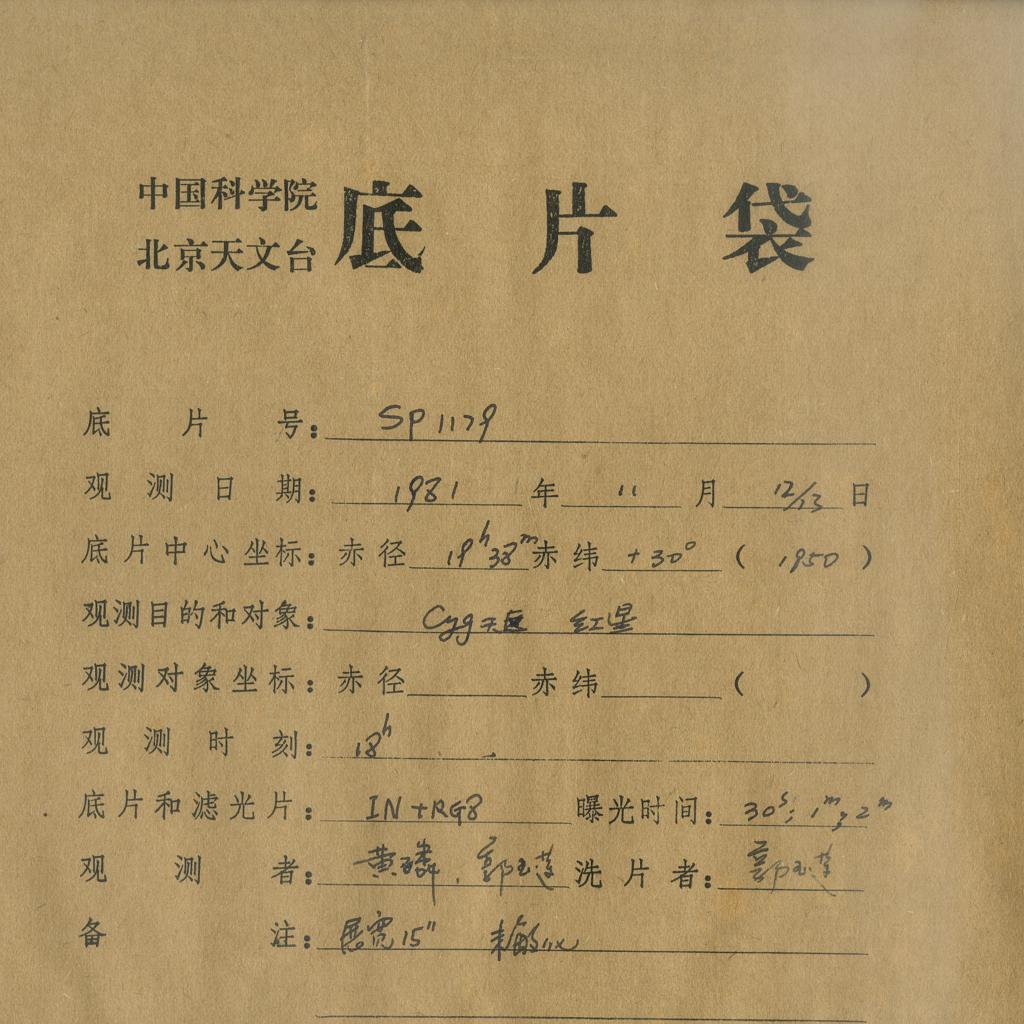 中国科学院
北京天文台
底片袋
底片号: SP 1179
观测日期: 1981年 11月 12/13日
底片中心坐标: 赤径 19h 38m 赤纬 +30° ( 1950 )
观测目的和对象: Cyg 天区 红星
观测对象坐标: 赤径 赤纬 ( )
观测时刻: 18h
底片和滤光片: IN+RG8 曝光时间: 30s; 1m; 2m
观测者: 黄磷. 郭玉莲 洗片者: 郭玉莲
备注: 展宽 15"